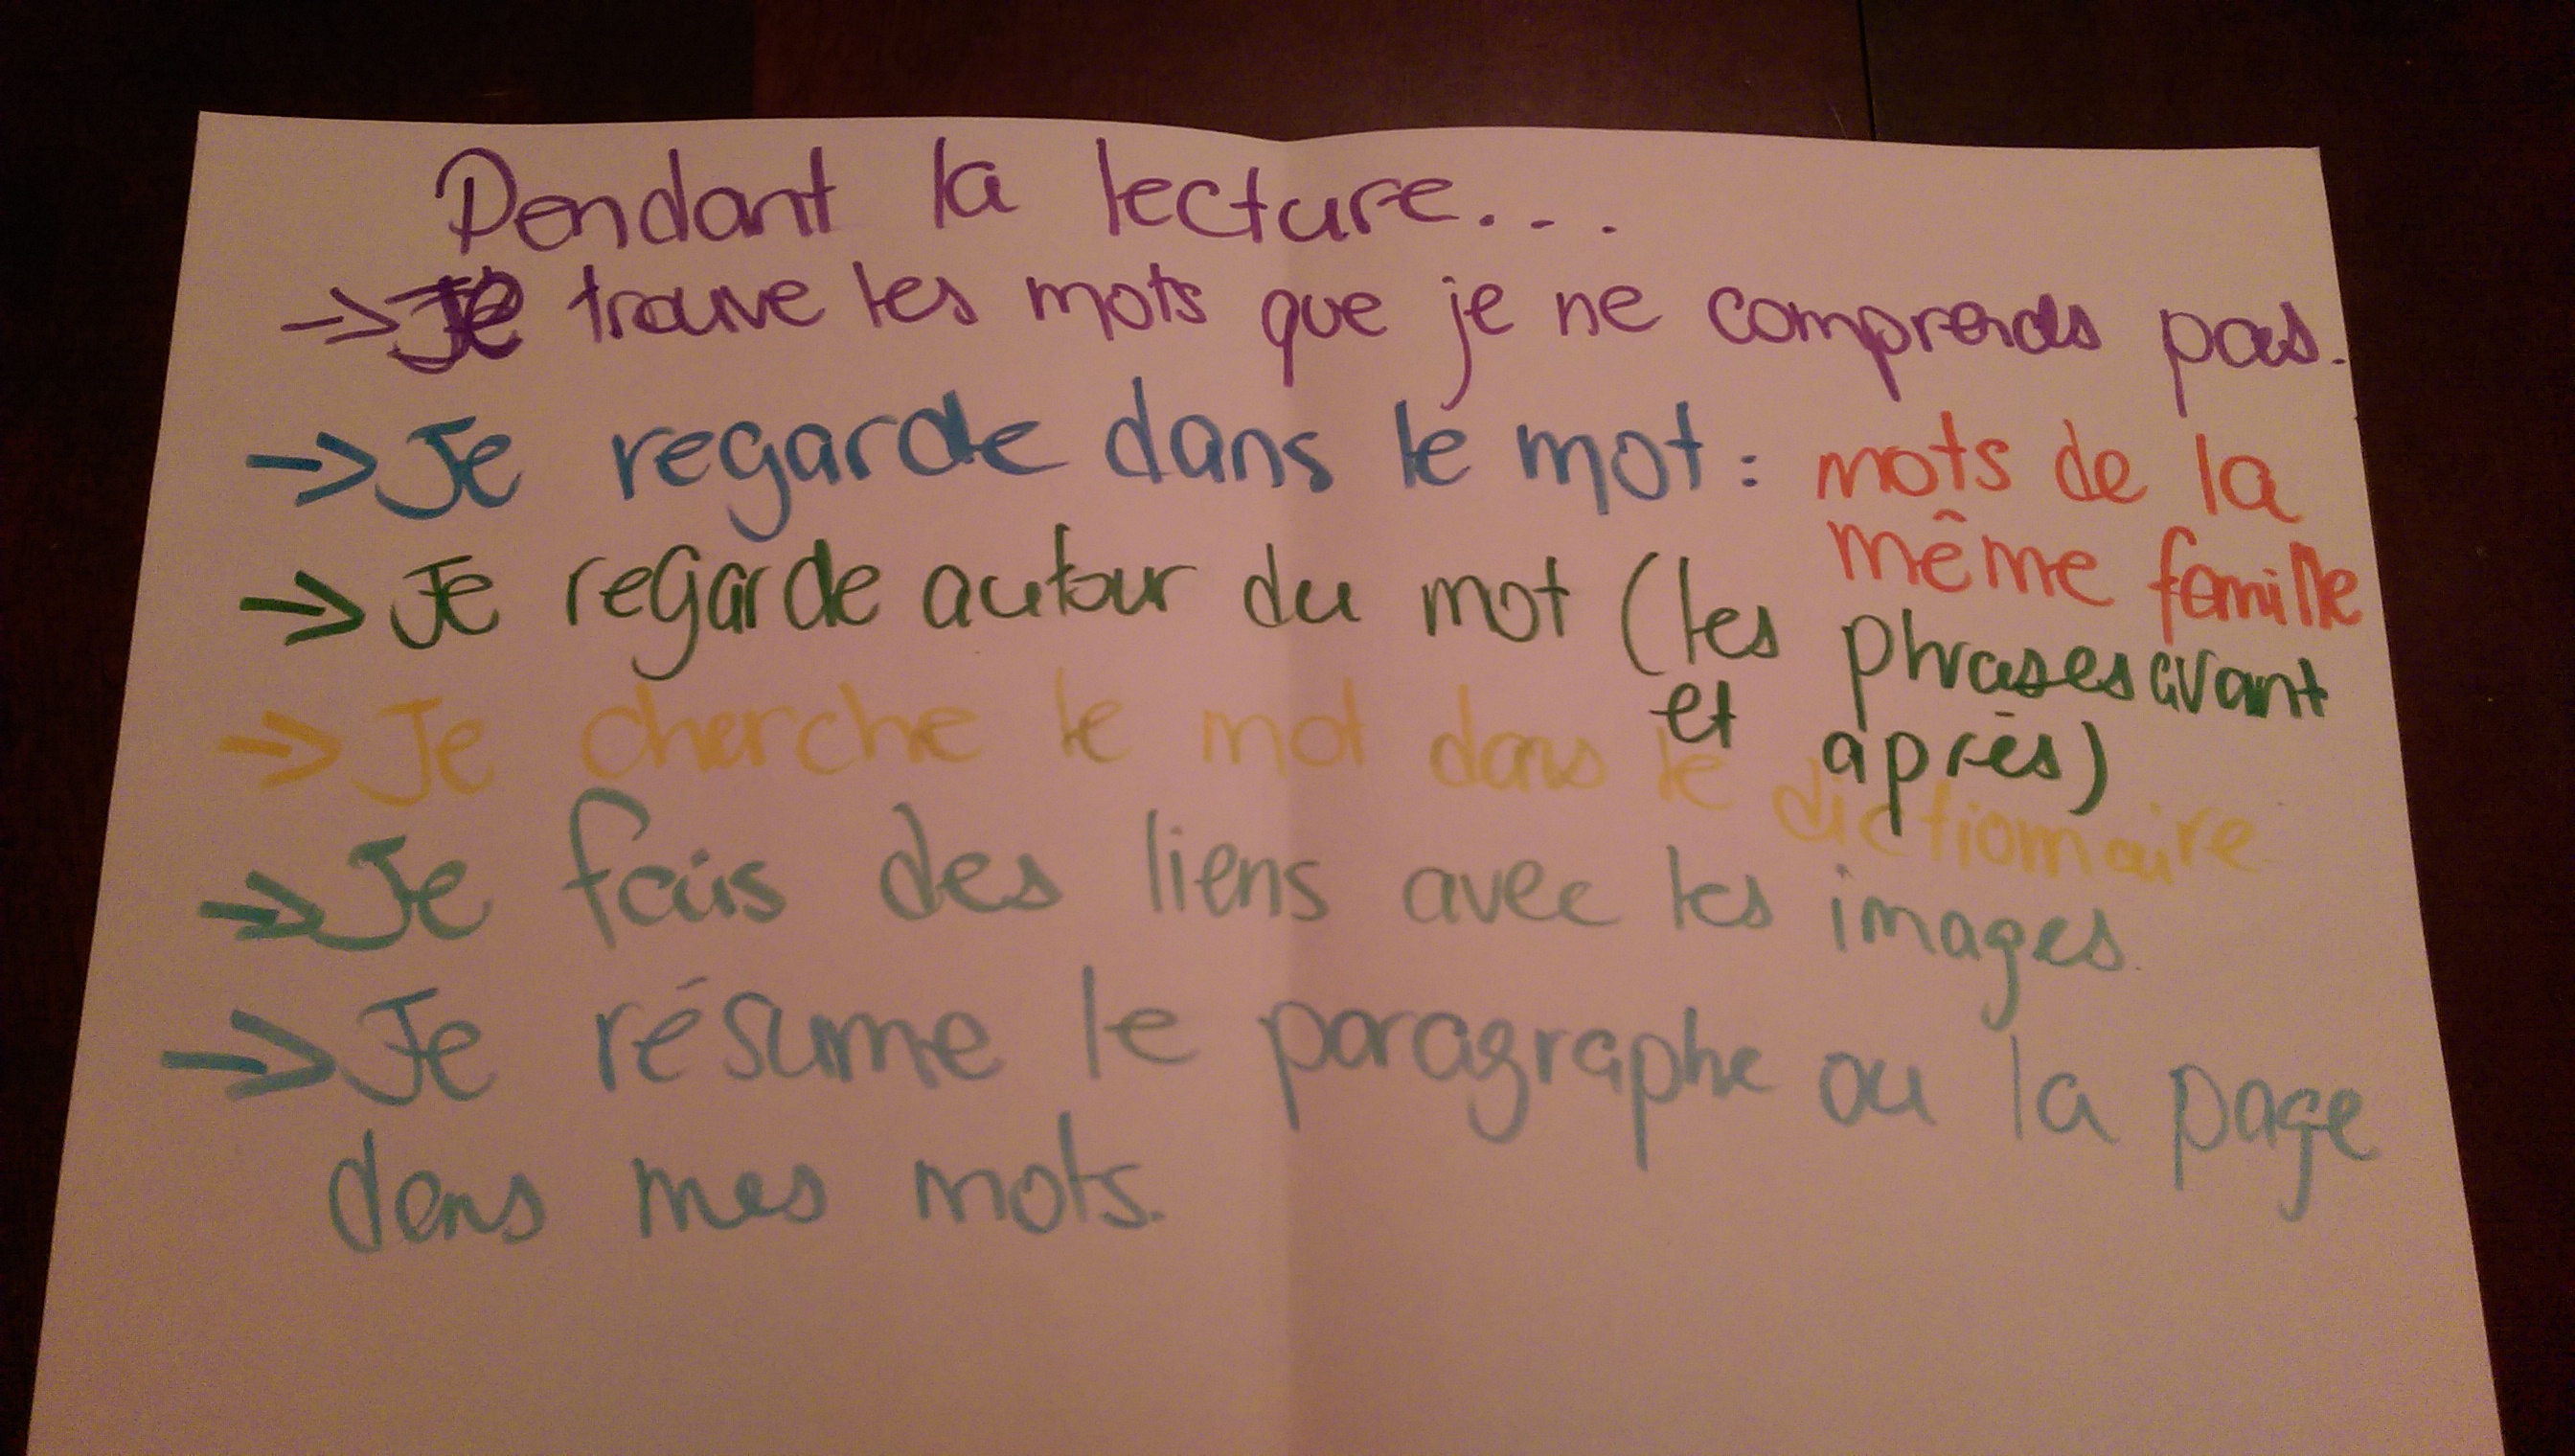 Pendant la lecture...
→ Je trouve les mots que je ne comprends pas.
→ Je regarde dans le mot : mots de la
même famille
→ Je regarde autour du mot (les phrases avant
et après)
→ Je cherche le mot dans le dictionnaire
→ Je fais des liens avec les images.
→ Je résume le paragraphe ou la page
dans mes mots.